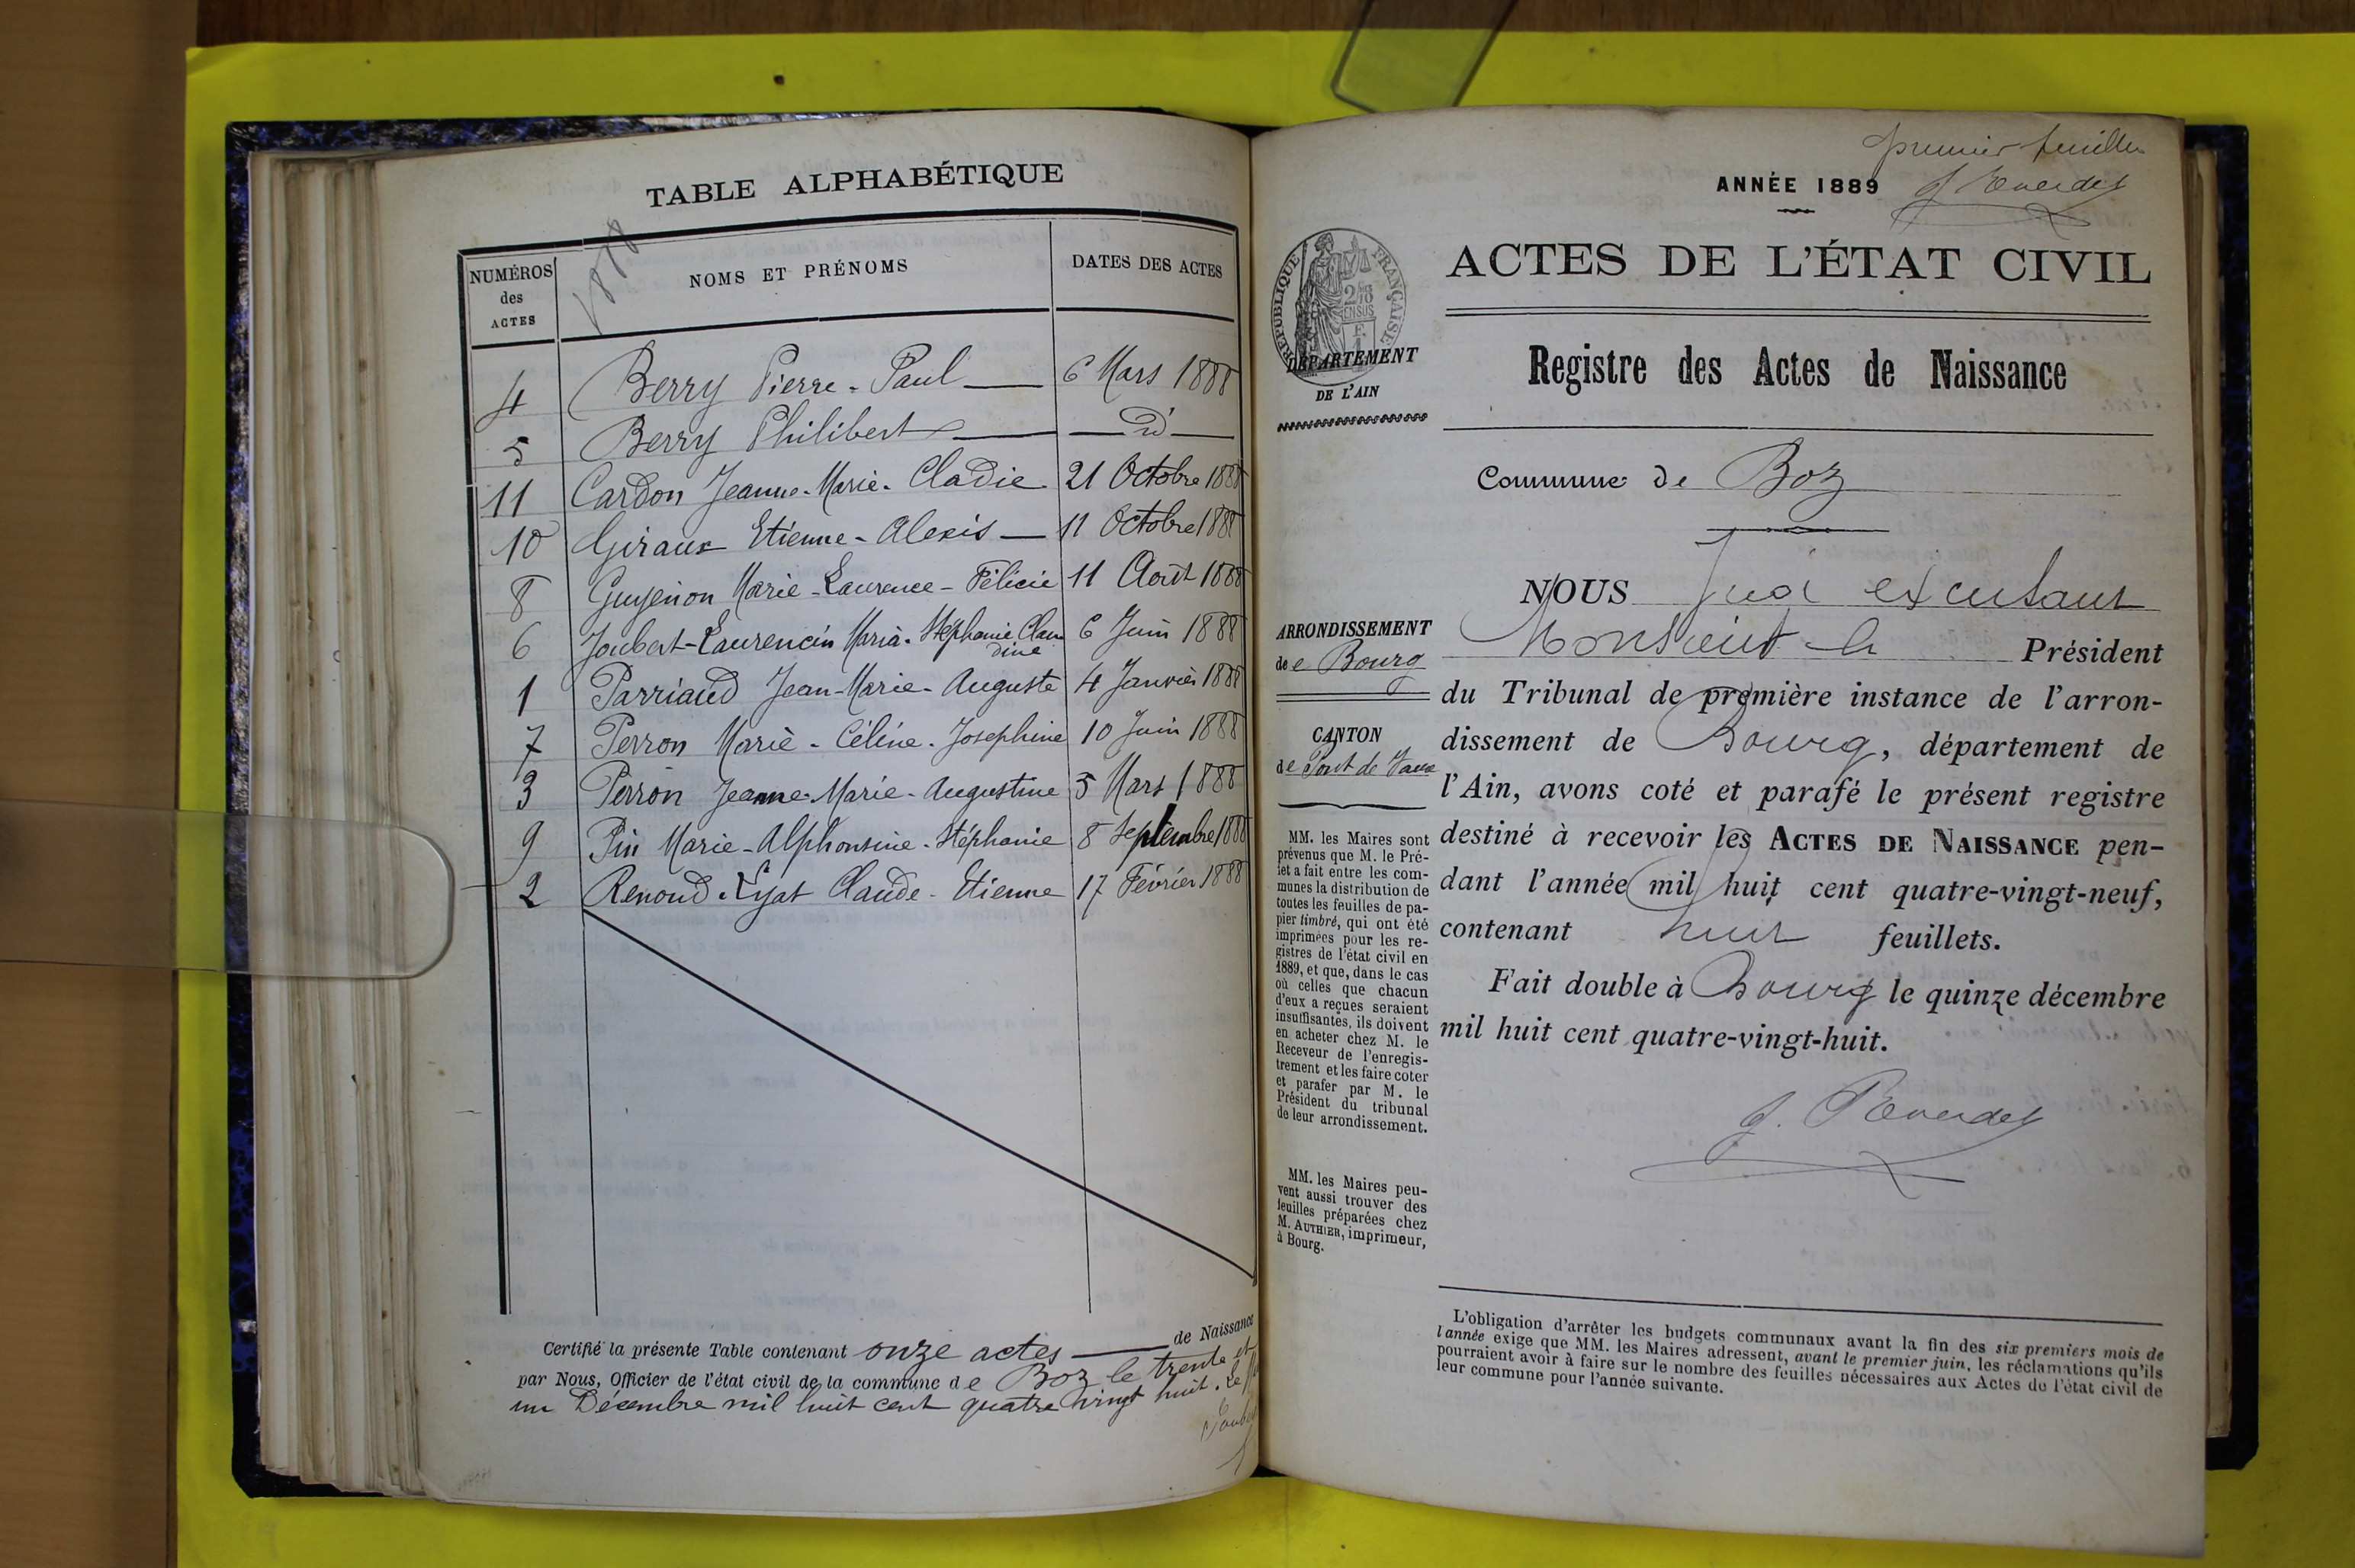 TABLE ALPHABÉTIQUE
1888
NUMÉROS des ACTES
NOMS ET PRÉNOMS
DATES DES ACTES
4 Berry Pierre-Paul 6 Mars 1888
5 Berry Philibert d°
11 Cardon Jeanne-Marie-Cladie 21 Octobre 1888
10 Giraux Etienne-Alexis 11 Octobre 1888
8 Guyenon Marie-Laurence-Félicie 11 Août 1888
6 Joubert-Laurencin Maria-Stéphanie Claudine 6 Juin 1888
1 Parriaud Jean-Marie-Auguste 4 Janvier 1888
7 Perron Marie-Céline-Josephine 10 Juin 1888
3 Perron Jeanne-Marie-Augustine 5 Mars 1888
9 Pin Marie-Alphonsine-Stéphanie 8 Septembre 1888
2 Renoud-Lyat Claude-Etienne 17 Février 1888
Certifié la présente Table contenant onze actes de Naissance
par Nous, Officier de l'état civil de la commune de Boz le trente et
un Décembre mil huit cent quatre vingt huit. Le
premier feuillet
ANNÉE 1889
ACTES DE L'ÉTAT CIVIL
RÉPUBLIQUE FRANÇAISE
DÉPARTEMENT
DE L'AIN
Registre des Actes de Naissance
Commune de Boz
ARRONDISSEMENT
de Bourg
CANTON
de Pont de Vaux
MM. les Maires sont
prévenus que M. le Pré-
fet a fait entre les com-
munes la distribution de
toutes les feuilles de pa-
pier timbré, qui ont été
imprimées pour les re-
gistres de l'état civil en
1889, et que, dans le cas
où celles que chacun
d'eux a reçues seraient
insuffisantes, ils doivent
en acheter chez M. le
Receveur de l'enregis-
trement et les faire coter
et parafer par M. le
Président du tribunal
de leur arrondissement.
MM. les Maires peu-
vent aussi trouver des
feuilles préparées chez
M. AUTHIER, imprimeur,
à Bourg.
NOUS
Monsieur le Président
du Tribunal de première instance de l'arron-
dissement de Bourg, département de
l'Ain, avons coté et parafé le présent registre
destiné à recevoir les ACTES DE NAISSANCE pen-
dant l'année mil huit cent quatre-vingt-neuf,
contenant huit feuillets.
Fait double à Bourg le quinze décembre
mil huit cent quatre-vingt-huit.
L'obligation d'arrêter les budgets communaux avant la fin des six premiers mois de
l'année exige que MM. les Maires adressent, avant le premier juin, les réclamations qu'ils
pourraient avoir à faire sur le nombre des feuilles nécessaires aux Actes de l'état civil de
leur commune pour l'année suivante.